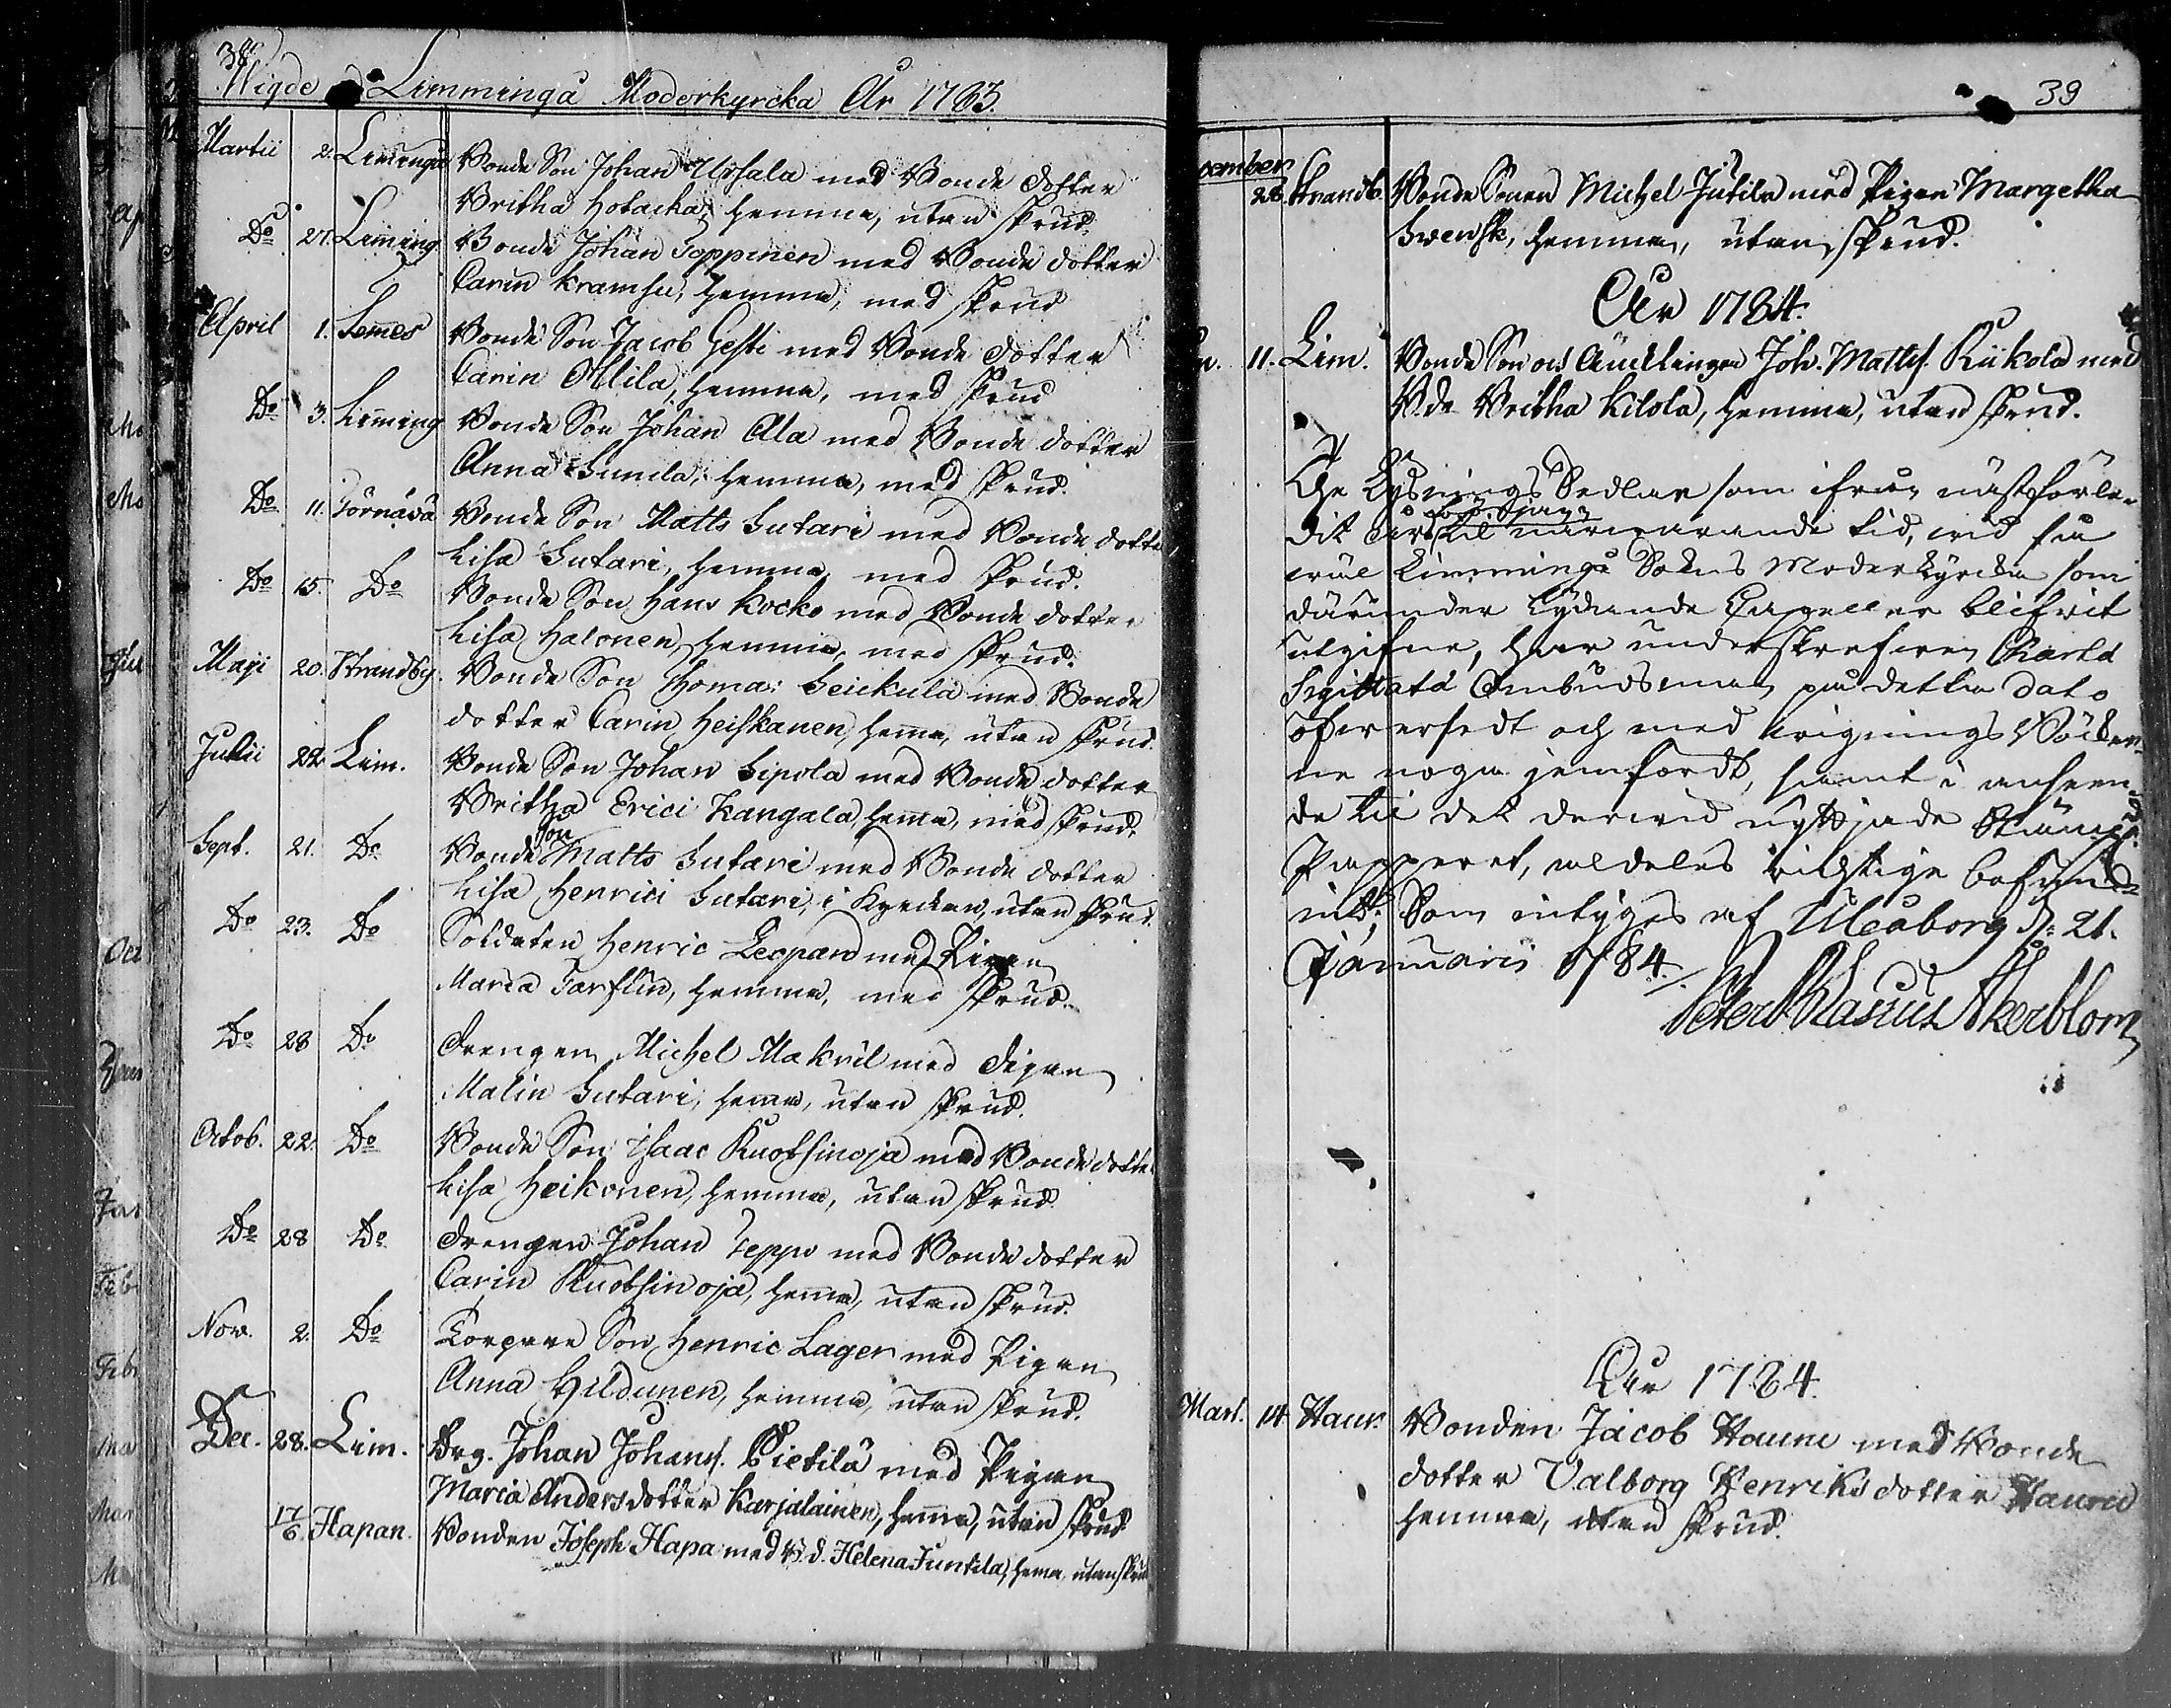 38
Wigde Limminga Moderkyrcka År 1783.
Martii 2. Liminga Bonde Son Johan Ursala med Bonde dotter
Britha Hotacka, hemma, utan skrud.
Do 27. Liming Bonde Johan Toppinen med Bonde dotter
Carin Kramsu, hemma, med skrud
April 1. Lemes Bonde Son Jacob Gesti med Bonde dotter
Carin Ollila, hemma, med skrud
Do 3. Liming Bonde Son Johan Ala med Bonde dotter
Anna Sunila, hemma, med skrud.
Do 11. Törnävä Bonde Son Matts Sutari med Bonde dotte
Lisa Sutari, hemma med skrud.
Do 15. Do Bonde Son Hans Kocko med Bonde dotter
Lisa Halonen, hemma, med skrud.
Maji 20. Strandby. Bonde Son Thomas Seickula med Bonde
dotter Carin Heiskanen, hema, utan skrud.
Julii 22. Lim. Bonde Son Johan Sipola med Bonde dotter
Britha Erici Kangala, hema, med skrud.
Sept. 21. Do Bonde son Matts Sutari med Bonde dotter
Lisa Henrici Sutari, i Kyrckan, utan skrud.
Do 23. Do Soldaten Henric Leopard med Pigan
Maria Tarflin, hemma, med skrud.
Do 28 Do Drengen Michel Makvil med Pigan
Malin Sutari, hema, utan skrud.
Octob. 22. Do Bonde Son Isaac Ruotsinoja med Bonde dotte
Lisa Heikonen, hemma, utan skrud
Do 28 Do Drengen Johan Teppo med Bonde dotter
Carin Ruotsinoja, hema, utan skrud.
Nov. 2. Do Torpare Son Henric Lager med Pigan
Anna Hildunen, hemma, utan skrud.
Dec. 28. Lim. Drg. Johan Johans. Pietilä med Pigan
Maria Andersdotter Karjalainen, hema, utan skrud
17/6. Hapan. Bonden Joseph Hapa med B. d. Helena Juntila, hema utan skrud
39
cember
28. Strandb. Bonde Sonen Michel Jutila med Pigan Margetha
Swensk, hemma, utan skrud.
År 1784.
n. 11. Lim. Bonde Son och Änklingen Joh. Matts. Riikola med
B.de Britha Kilola, hemma, utan skrud.
De Lysnings Sedlar som ifrån nästförle-
dit års början til närwarande tid, wid så
wäl Limminga Sokns Moder Kyrcka som
därunder lydande Capeller blifwit
utgifne, har underskrefwen Charta
Sigillatæ Ombudsman på detta dato
öfwersedt och med wignings Böcker-
ne noga jemfördt, samt i anseen-
de til det derwid nyttjade Stämp.
Papperet, aldeles richtige befun-
nit; Som intyges af Uleåborg D. 21.
Januarii 1784.
Peter Rasius Åkerblom
År 1784.
Mart. 14. Haur. Bonden Jacob Hauru med Bonde
dotter Valborg Henriksdotter Hauru
hemma, utan skrud.